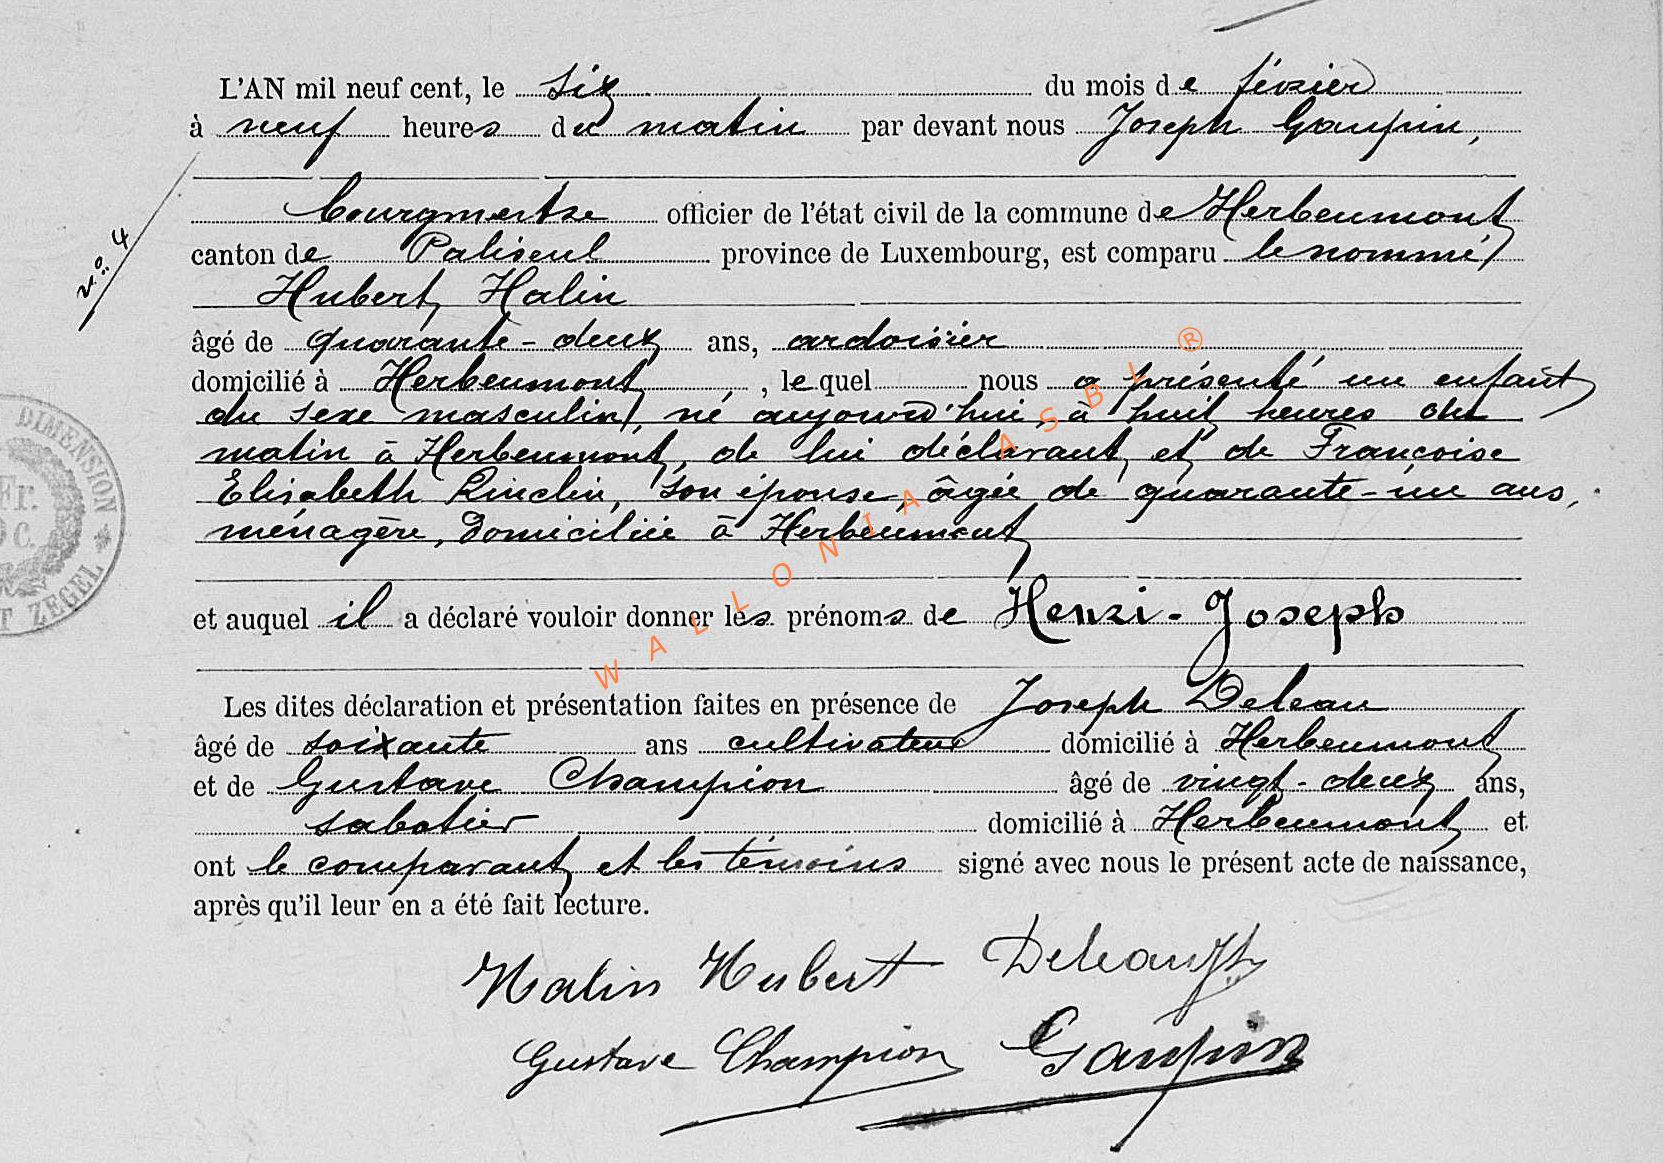 L'AN mil neuf cent, le six du mois de février
à neuf heures du matin par devant nous Joseph Gaupin,
bourgmestre officier de l'état civil de la commune de Herbeumont
n.º 4
canton de Paliseul province de Luxembourg, est comparu le nommé
Hubert Halin
âgé de quarante-deux ans, ardoisier
domicilié à Herbeumont, lequel nous a présenté un enfant
du sexe masculin, né aujourd'hui, à huit heures du
matin à Herbeumont, de lui déclarant et de Françoise
Elisabeth, son épouse, âgée de quarante-un ans,
ménagère, domiciliée à Herbeumont
et auquel il a déclaré vouloir donner les prénoms de Henri-Joseph
Les dites déclaration et présentation faites en présence de Joseph Deleau
âgé de soixante ans cultivateur domicilié à Herbeumont
et de Gustave Champion âgé de vingt-deux ans,
sabotier domicilié à Herbeumont et
ont le comparant et les témoins signé avec nous le présent acte de naissance,
après qu'il leur en a été fait lecture.
Halin Hubert
Gustave Champion Gaupin
DIMENSION
Fr.
C.
T ZEGEL
WALLONIA ASBL ®